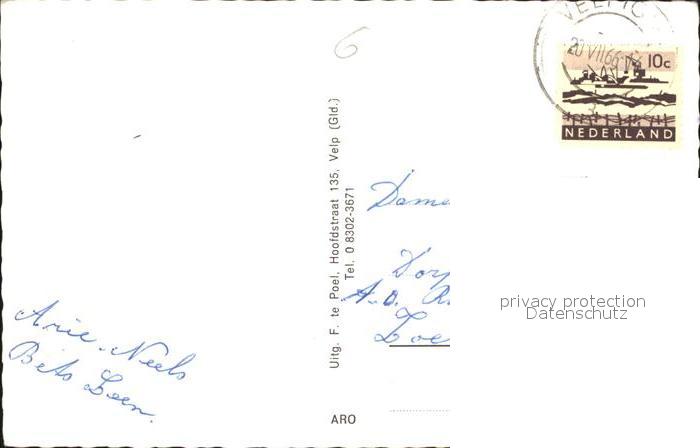 6
VELP (G
20 VII 66
10c
NEDERLAND
Uitg. F. te Poel, Hoofdstraat 135, Velp (Gld.)
Tel. 0 8302-3671
Dame
Dorp
A.D. R
Loe
privacy protection
Datenschutz
Arie. Neels
Bets Loen.
ARO